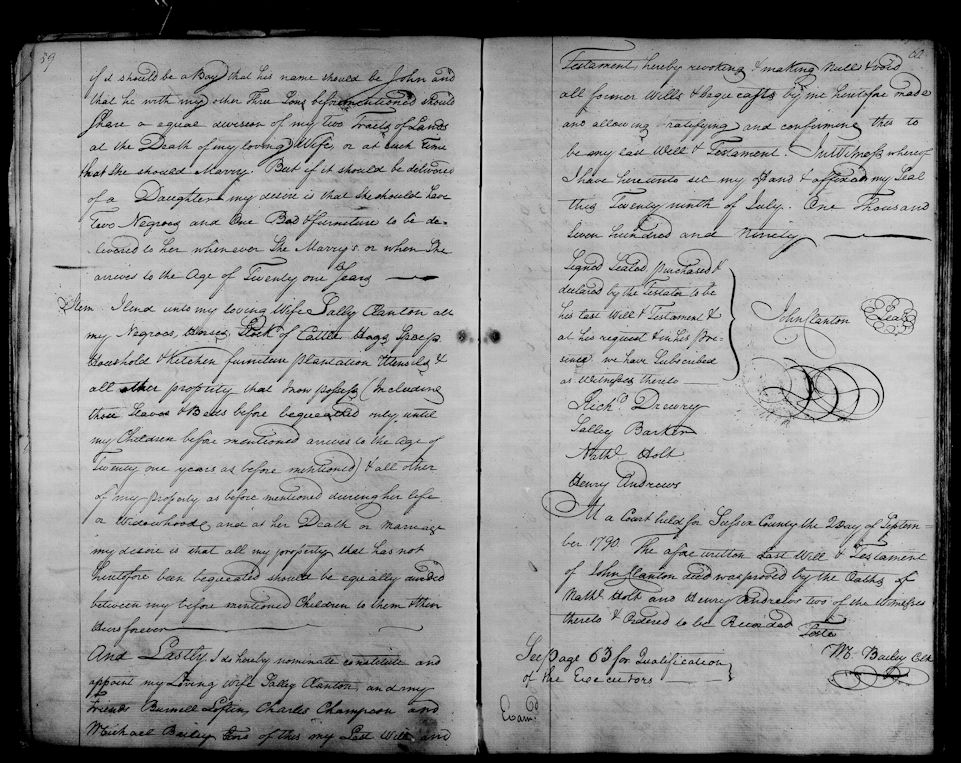 59
if it should be a Boy that his name should be John and
that he with my other Three Sons beforementioned should
share a equal division of my two Tracts of Lands
at the Death of my loving Wife, or at such Time
that she should Marry. But if it should be delivered
of a Daughter my desire is that she should have
Two Negroes and One Bed & furniture to be de-
livered to her whenever she Marrys or when she
arrives to the Age of Twenty one Years
Item. I lend unto my loving Wife Sally Clanton all
my Negroes, Horses, Stock of Cattle Hogs Sheep
Household & Kitchen furniture plantation Utensils &
all other property that I now possess (Including
those Slaves & Beds before bequeathed only until
my Children before mentioned arrives to the Age of
Twenty one years as before mentioned) & all other
of my property as before mentioned during her life
or Widowhood, and at her Death or marriage
my desire is that all my property that has not
heretofore been bequeated should be equially divided
between my before mentioned Children to them & their
Heirs forever
And Lastly. I do hereby nominate constitute and
appoint my Loving Wife Salley Clanton, and my
friends Burnell Loftin, Charles Champion and
Michael Bailey Exors of this my Last Will and
60
Testament, hereby revoking & making Null & void
all former Wills & bequeasts by me heretofore made
and allowing ratifying and confirming this to
be my last Will & Testament. In Witness whereof
I have hereunto set my Hand & affixed my Seal
this Twenty ninth of July. One Thousand
Seven hundred and Ninety
Signed Sealed purchased &
declared by the Testator to be
his last Will & Testament &
at his request & in his Pre-
sence we have Subscribed
as Witnesses thereto
John Clanton Seal
Richd. Drewry
Salley Barker
Nathl. Holt
Henry Andrews
At a Court held for Sussex County the 2 Day of Septem-
ber 1790. The afore written Last Will & Testament
of John Clanton decd was proved by the Oaths of
Nathl Holt and Henry Andrews two of the Witnesses
thereto & Ordered to be Recorded
Teste
Ml. Bailey Clk
See page 63 for Qualification
of the Executors
Exam.